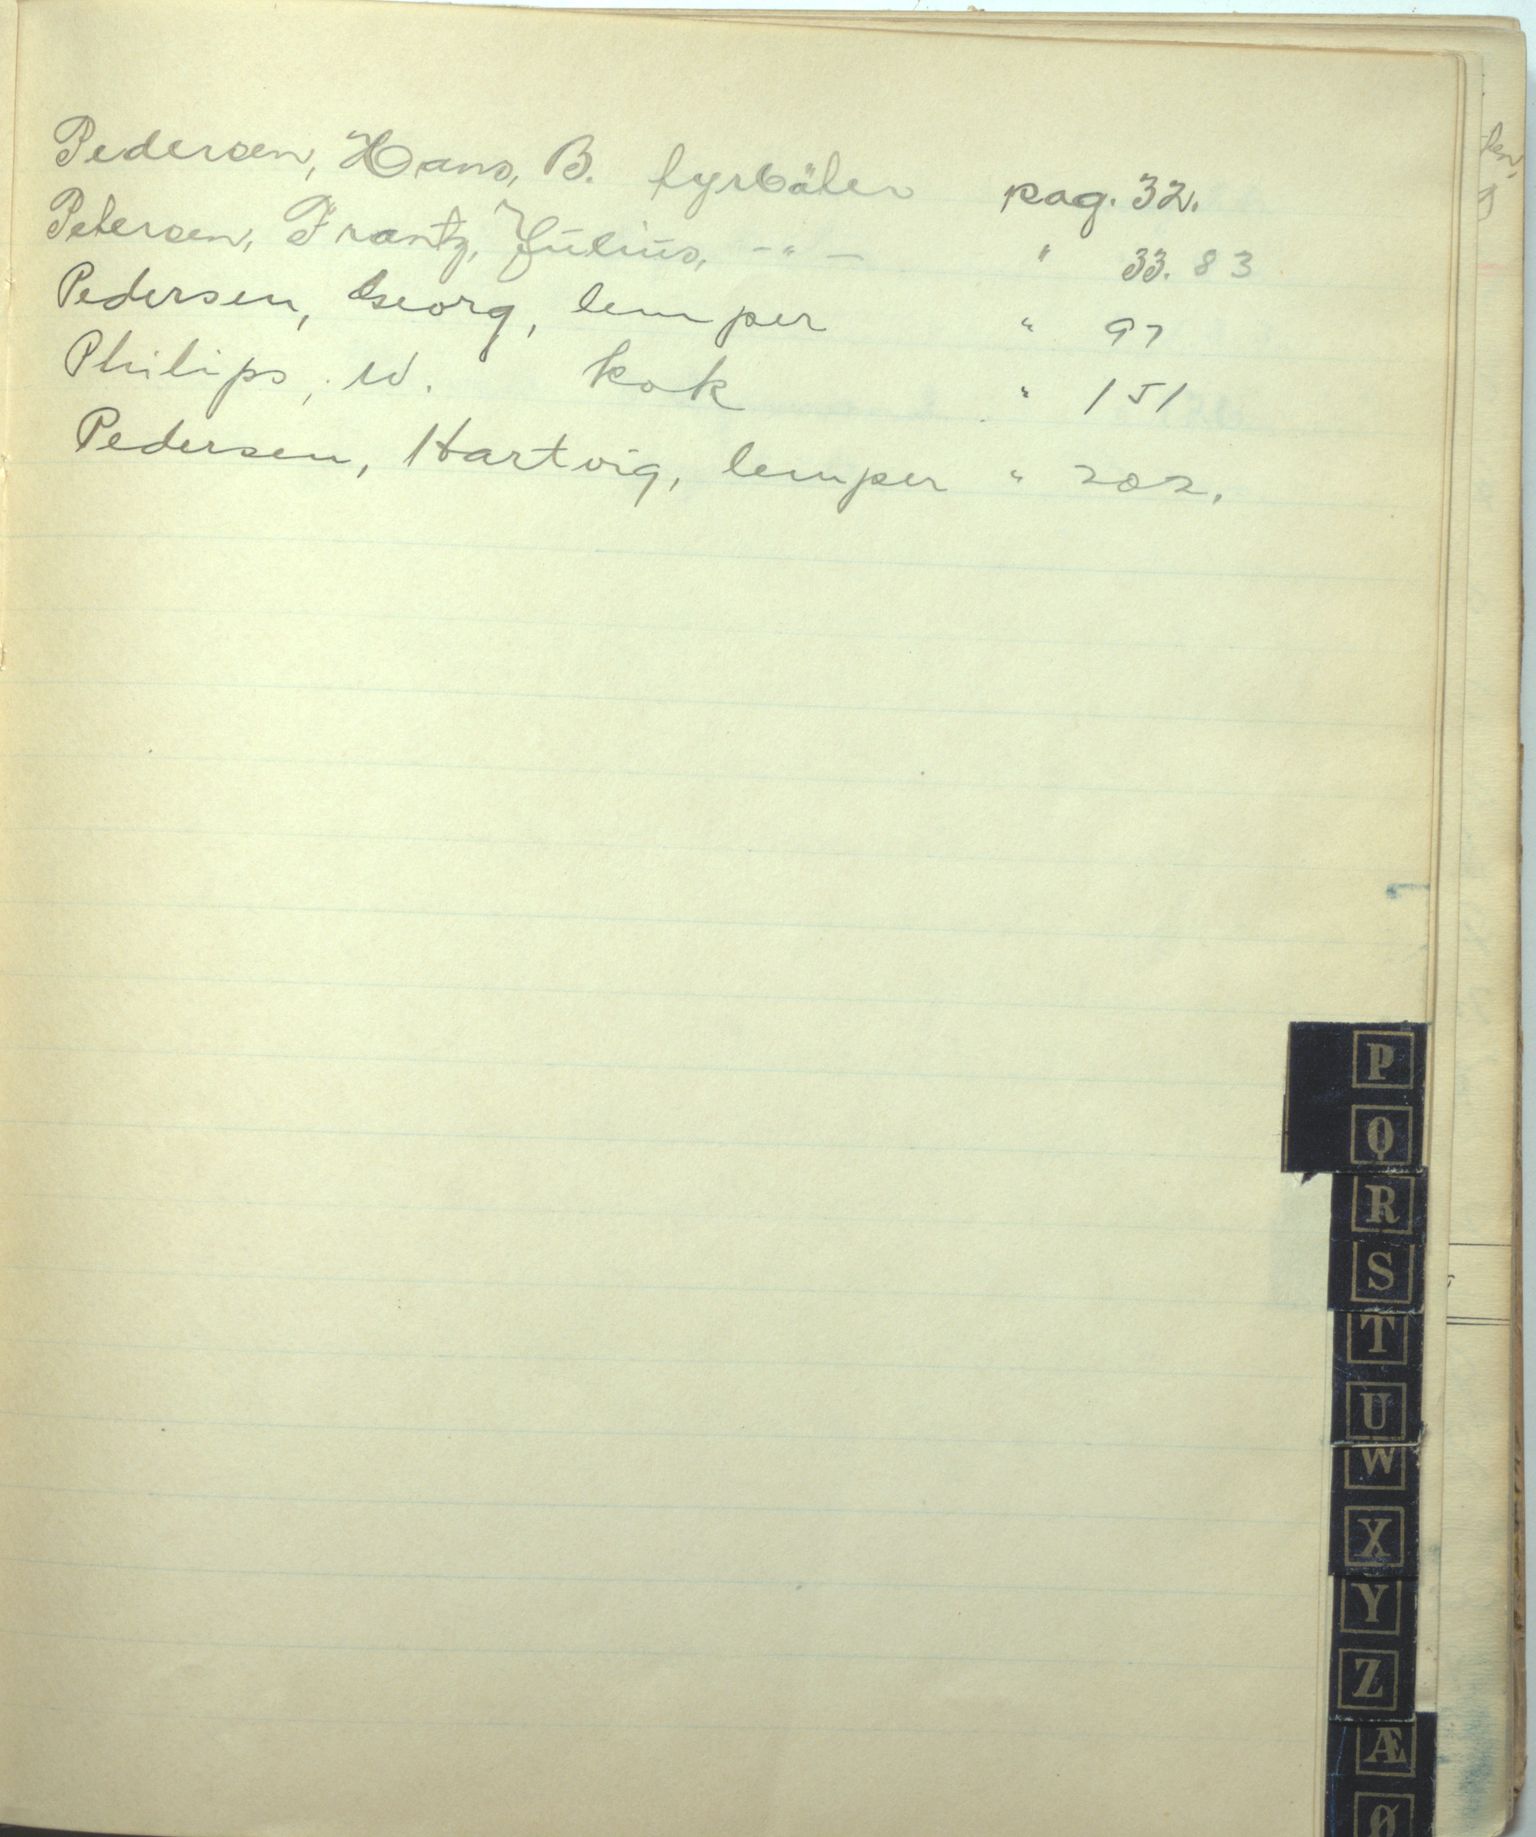 Pedersen, Hans, B. fyrböter pag. 32.
Petersen, Frantz, Julius, -"- " 33. 83
Pedersen, Georg, lemper " 97
Philips, W. kok " 151
Pedersen, Hartvig, lemper " 202.
P
Q
R
S
T
U
W
X
Y
Z
Æ
Ø